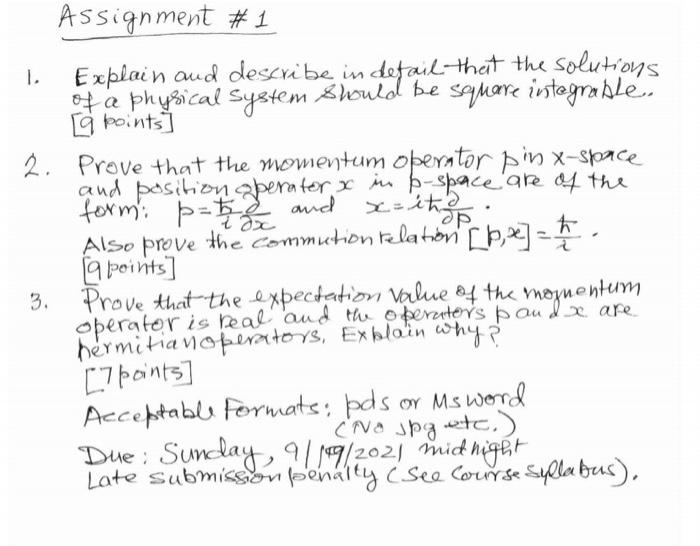 Assignment #1
1. Explain and describe in detail that the solutions
of a physical system should be square integrable.
[9 points]
2. Prove that the momentum operator p in x-space
and position operator x in p-space are of the
form: p = ħ/i ∂/∂x and x = iħ ∂/∂p .
Also prove the commution relation [p,x] = ħ/i .
[9 points]
3. Prove that the expectation value of the momentum
operator is real and the operators p and x are
hermitian operators. Explain why?
[7 points]
Acceptable Formats: pds or Ms word
(No jpg etc.)
Due: Sunday, 9/19/2021 midnight
Late submission penalty (See Course syllabus).